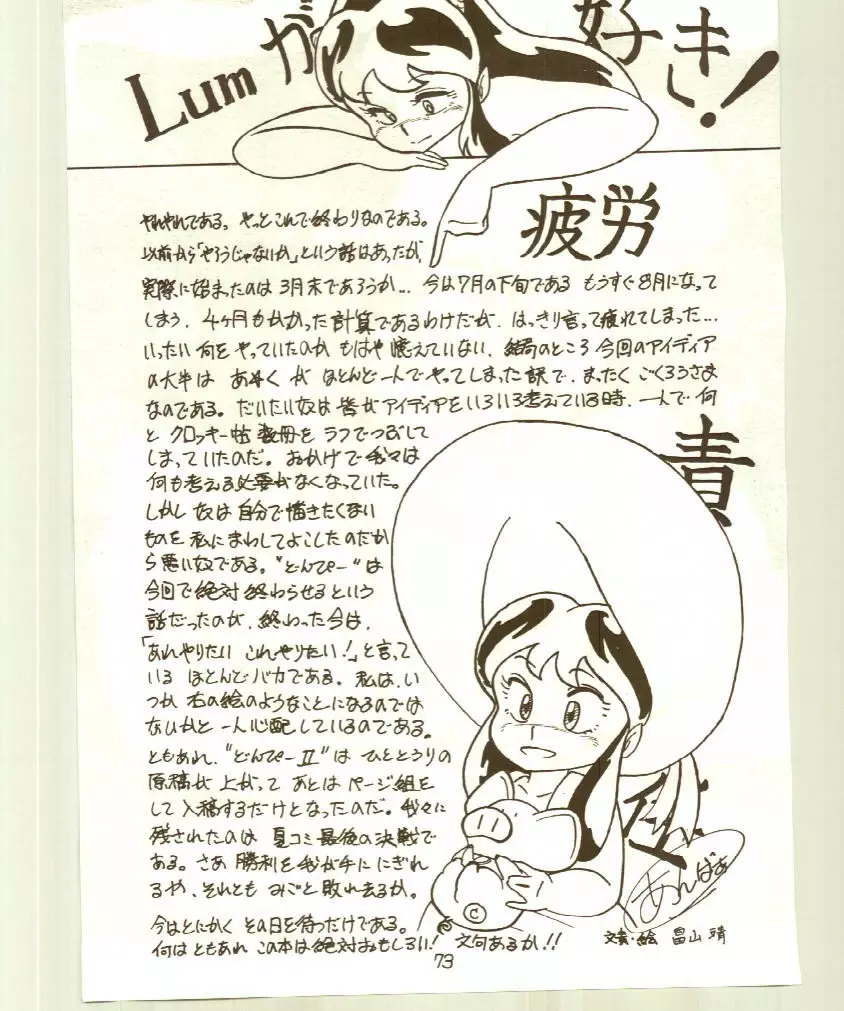 Lumが好き!
疲労
やれやれである。やっとこれで終わりなのである。
以前から「やろうじゃないか」という話はあったが、
実際に始まったのは3月末であろうか… 今は7月の下旬である もうすぐ8月になって
しまう。4ヶ月もかかった計算であるわけだが、はっきり言って疲れてしまった…
いったい何をやっていたのか もはや憶えていない。結局のところ 今回のアイディア
の大半は あゆく が ほとんど一人でやってしまった訳で、まったく ごくろうさま
なのである。だいたい奴は皆がアイディアをいろいろ考えている時、一人で何
と クロッキー帖 数冊を ラフでつぶして
しまっていたのだ。おかげで我々は
何も考える必要がなくなっていた。
しかし 奴は自分で描きたくない
ものを 私にまわしてよこしたのだか
ら悪い奴である。"どんぴー"は
今回で絶対終わらせるという
話だったのが、終わった今は、
「あれやりたい これやりたい!」と言って
いる ほとんどバカである。私は、い
つか 右の絵のようなことになるのでは
ないかと 一人心配しているのである。
ともあれ、"どんぴーⅡ"は ひととうりの
原稿が上がって あとは ページ組を
して入稿するだけとなったのだ。我々に
残されたのは 夏コミ最後の決戦で
ある。さあ 勝利を我が手に にぎれ
るや、それとも みごと敗れ去るか。
今はとにかく その日を待つだけである。
何はともあれ この本は絶対おもしろい! 文句あるか!!
責
©
あんばあ
文責・絵 畠山 靖
73